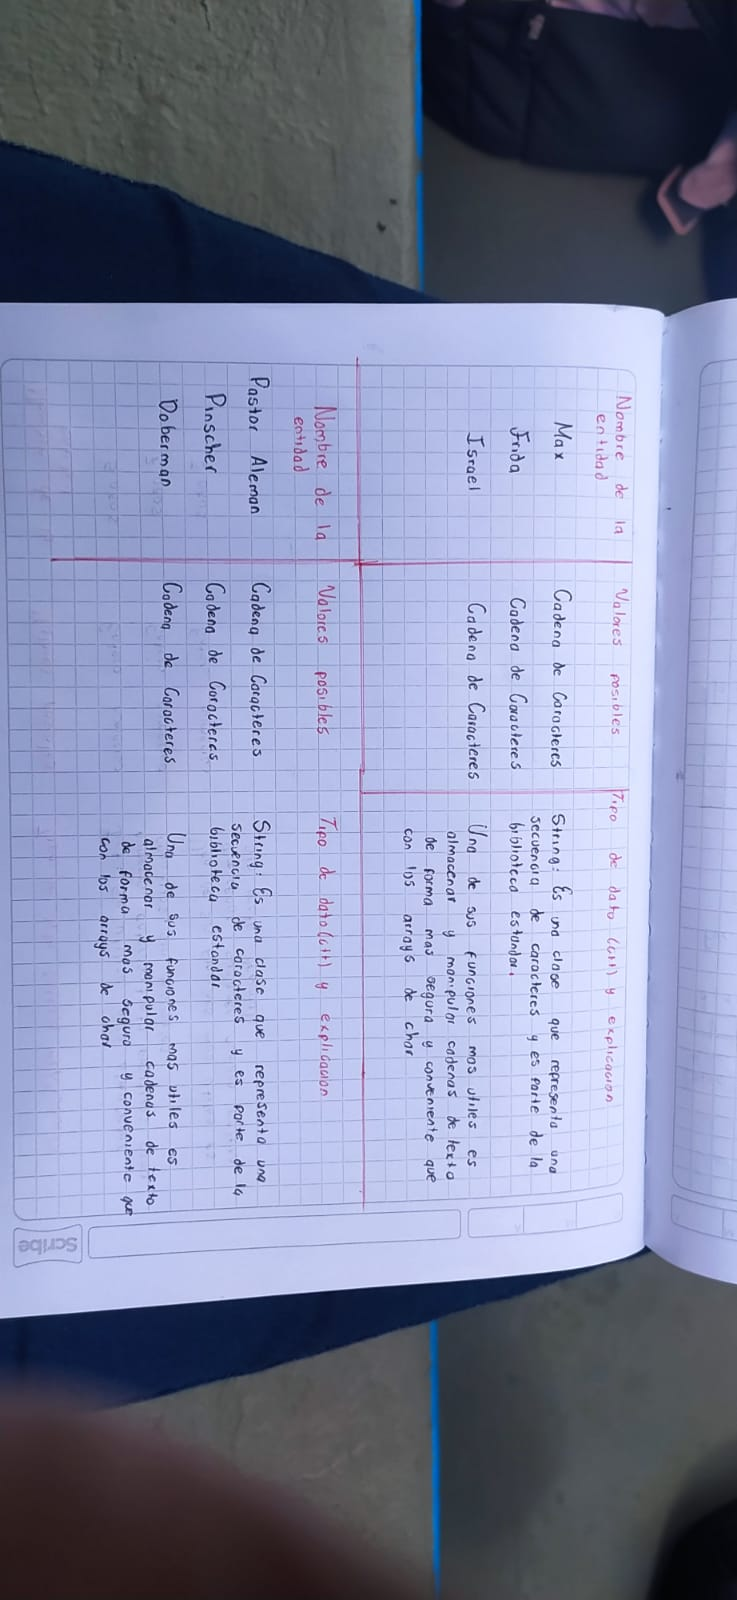 Nombre de la entidad
Valores posibles
Tipo de dato (c++) y explicacion
Max
Cadena de Caracteres
String: Es una clase que representa una
secuencia de caracteres y es parte de la
Frida
Cadena de Caracteres
biblioteca estandar.
Israel
Cadena de Caracteres
Una de sus funciones mas utiles es
almacenar y manipular cadenas de texto
de forma mas segura y conveniente que
con los arrays de char
Nombre de la entidad
Valores posibles
Tipo de dato (c++) y explicacion
Pastor Aleman
Cadena de Caracteres
String: Es una clase que representa una
secuencia de caracteres y es parte de la
Pinscher
Cadena de Caracteres
biblioteca estandar
Doberman
Cadena de Caracteres
Una de sus funciones mas utiles es
almacenar y manipular cadenas de texto
de forma mas segura y conveniente que
con los arrays de char
Scribe